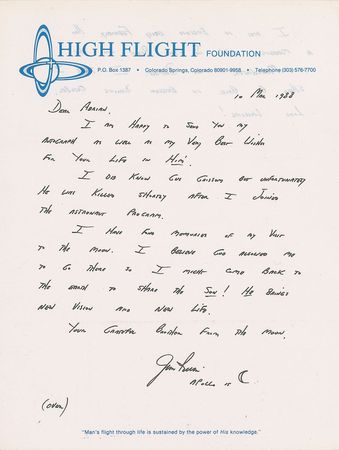 HIGH FLIGHT FOUNDATION
P.O. Box 1387 • Colorado Springs, Colorado 80901-9958 • Telephone (303) 576-7700
10 Mar 1988
Dear Adrian,
I am Happy to Send You my
autograph as well as my Very Best Wishes
For Your Life in Him!
I Did Know Gus Grissom But unfortunately
He was Killed Shortly after I Joined
the astronaut Program.
I Have Fond memories of my Visit
to the Moon. I Believe God allowed me
to Go there so I might Come Back to
the Earth to Share the Son! He Brings
New Vision and New Life.
Your Grateful Brother From the Moon,
Jim Irwin
Apollo 15
(over)
"Man's flight through life is sustained by the power of His knowledge."